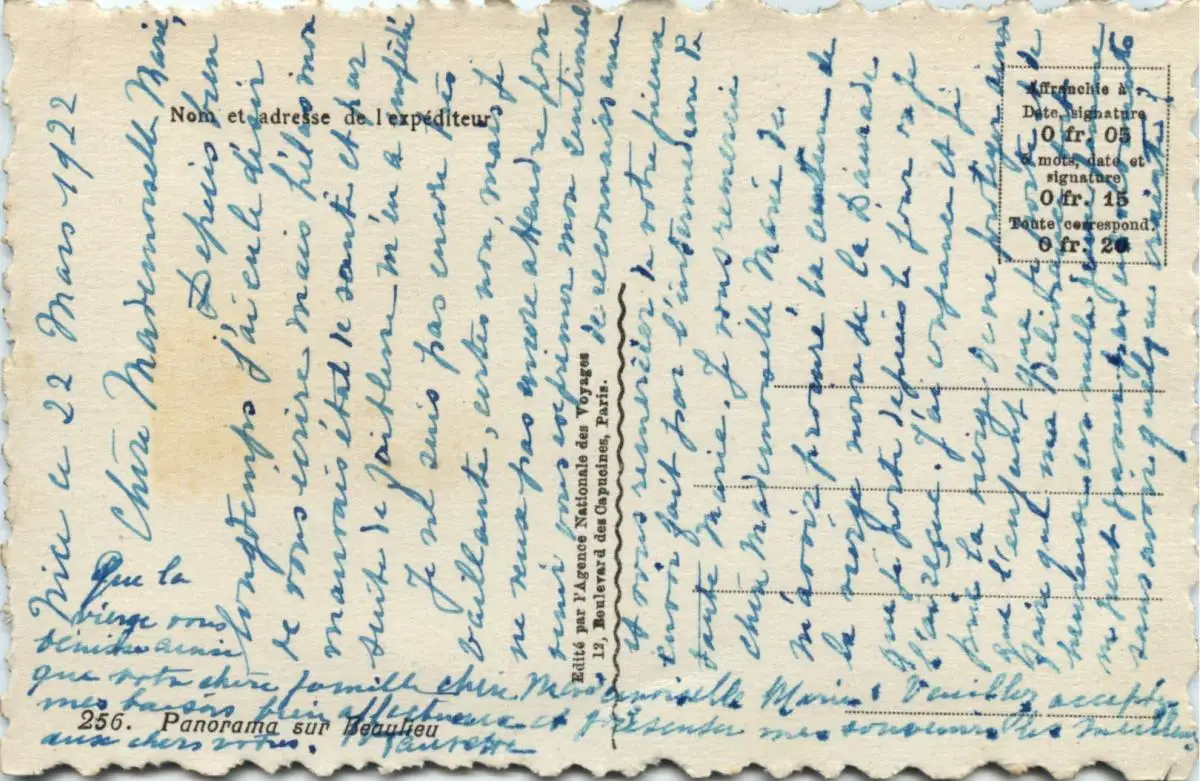 Nice ce 22 Mars 1922
Chère Mademoiselle Marie,
Depuis bien
longtemps j'ai eu le désir
de vous écrire mais hélas mon
mauvais état de santé et par
suite de faiblesse m'en a empêché
Je ne suis pas encore très
vaillante, certes non, mais je
ne veux pas encore attendre pour
venir vous exprimer mon sentiment
de reconnaissance
et vous remercier de votre pieux
envoi fait par l'intermédiaire de
tante Marie. Je vous remercie
chère Mademoiselle Marie de
m'avoir procuré la ceinture de
la vierge noire de la Daurade
que je porte depuis le jour où je
l'ai reçue. J'ai confiance et je
prie la vierge de me protéger ainsi
que l'enfant que je porte
ne peut
sans avoir quelque
Que la
vierge vous
bénisse ainsi
que votre chère famille chère Mademoiselle Marie. Veuillez accepter
mes baisers bien affectueux et présenter mes souvenirs les meilleurs
aux chers vôtres.
Nom et adresse de l'expéditeur
Affranchie à
Date, signature
0 fr. 05
5 mots, date et
signature
0 fr. 15
Toute correspond.
0 fr. 20
Edité par l'Agence Nationale des Voyages
12, Boulevard des Capucines, Paris.
256. Panorama sur Beaulieu